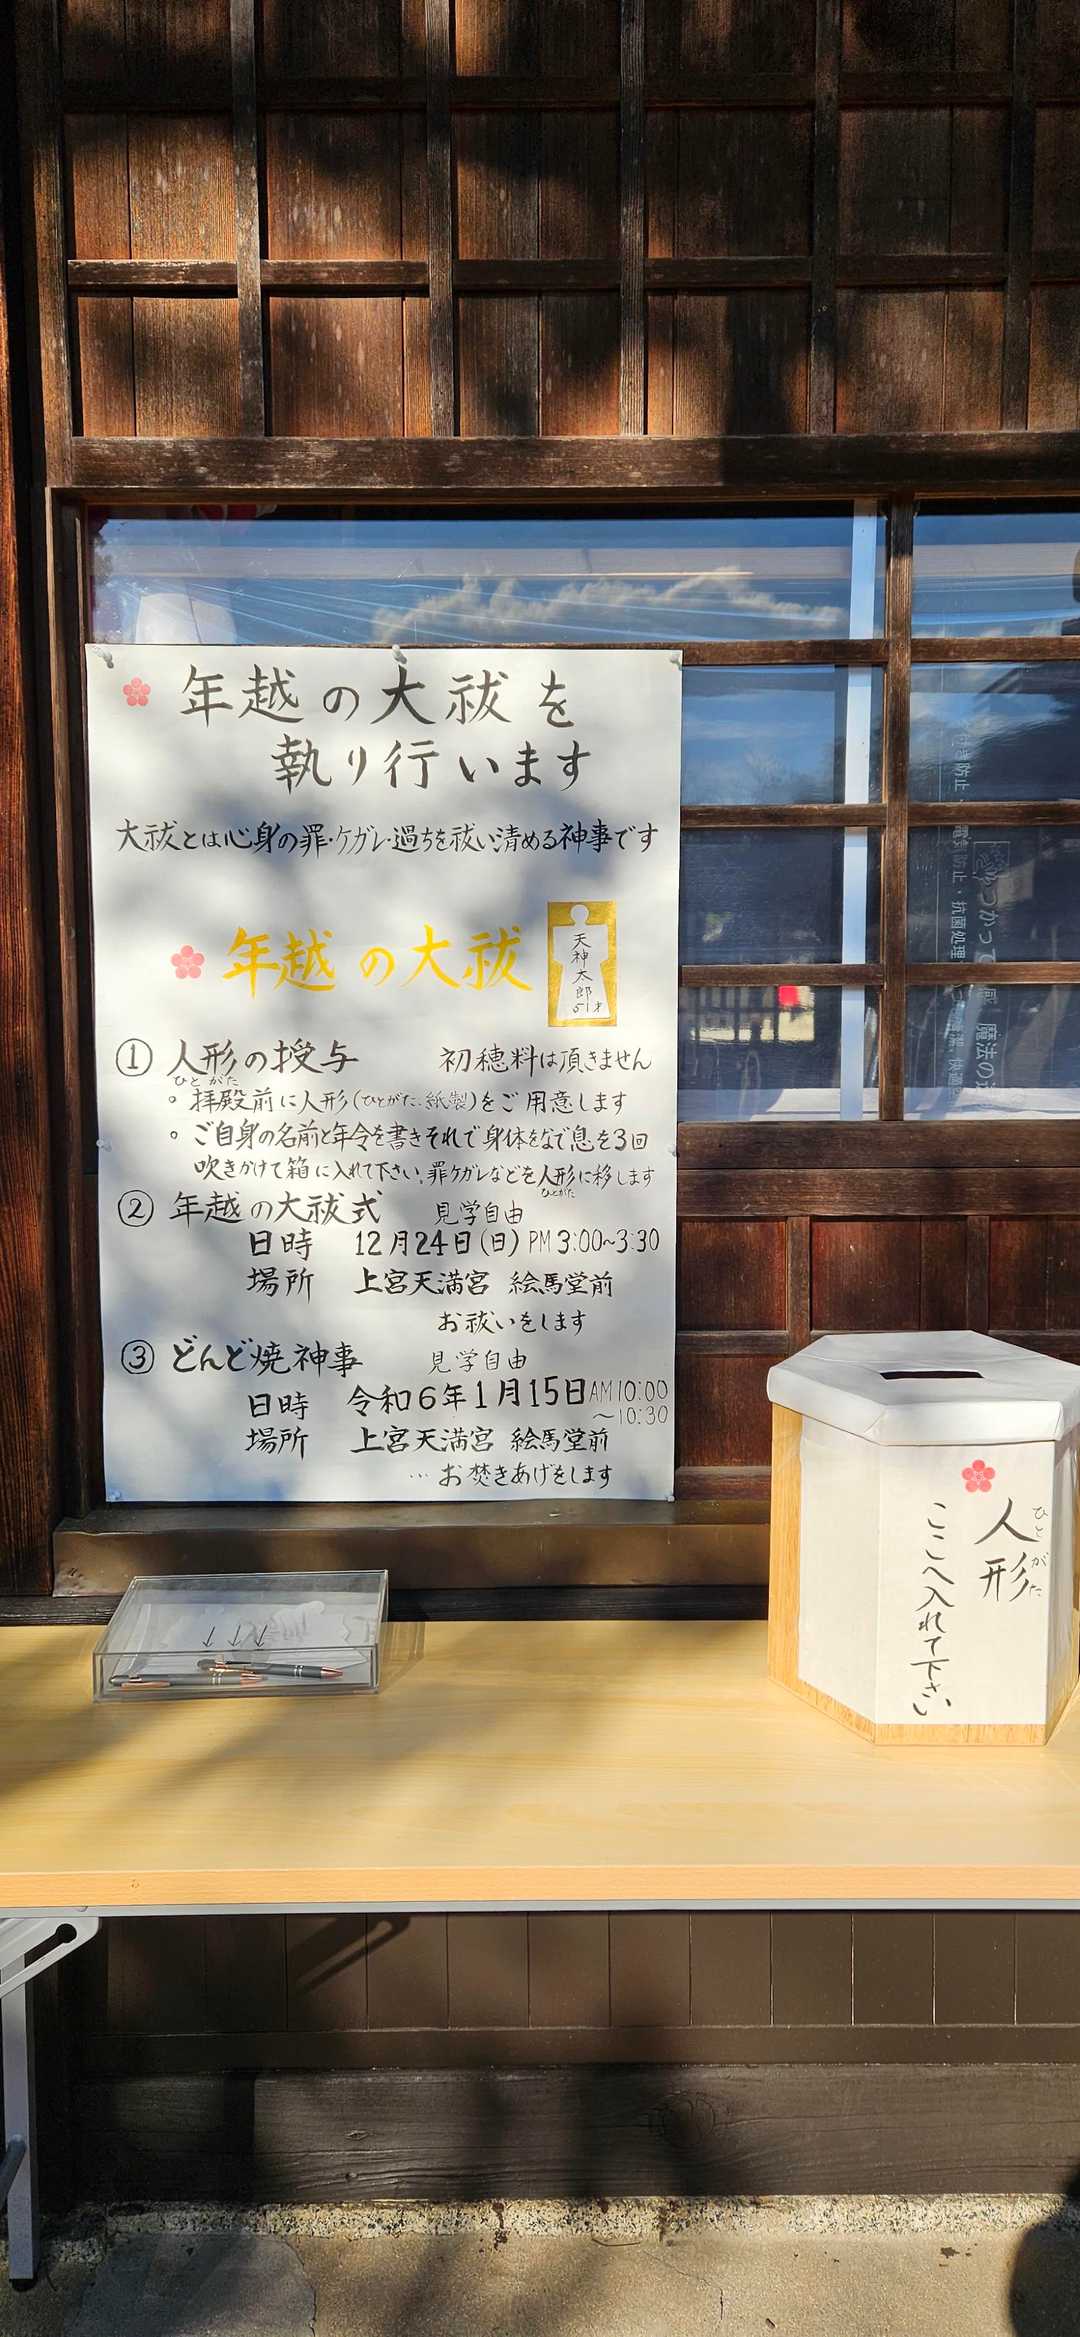 年越の大祓を
執り行います
大祓とは心身の罪・ケガレ・過ちを祓い清める神事です
年越の大祓
天神太郎
51才
① 人形の授与 初穂料は頂きません
ひとがた
○ 拝殿前に人形(ひとがた、紙製)をご用意します
○ ご自身の名前と年令を書きそれで身体をなで息を3回
吹きかけて箱に入れて下さい。罪ケガレなどを人形に移します
ひとがた
② 年越の大祓式 見学自由
日時 12月24日(日) PM 3:00~3:30
場所 上宮天満宮 絵馬堂前
お祓いをします
③ どんど焼神事 見学自由
日時 令和6年1月15日 AM 10:00
~10:30
場所 上宮天満宮 絵馬堂前
… お焚きあげをします
人形
ひとがた
ここへ入れて下さい
防止・
防止・抗菌処理
魔法の